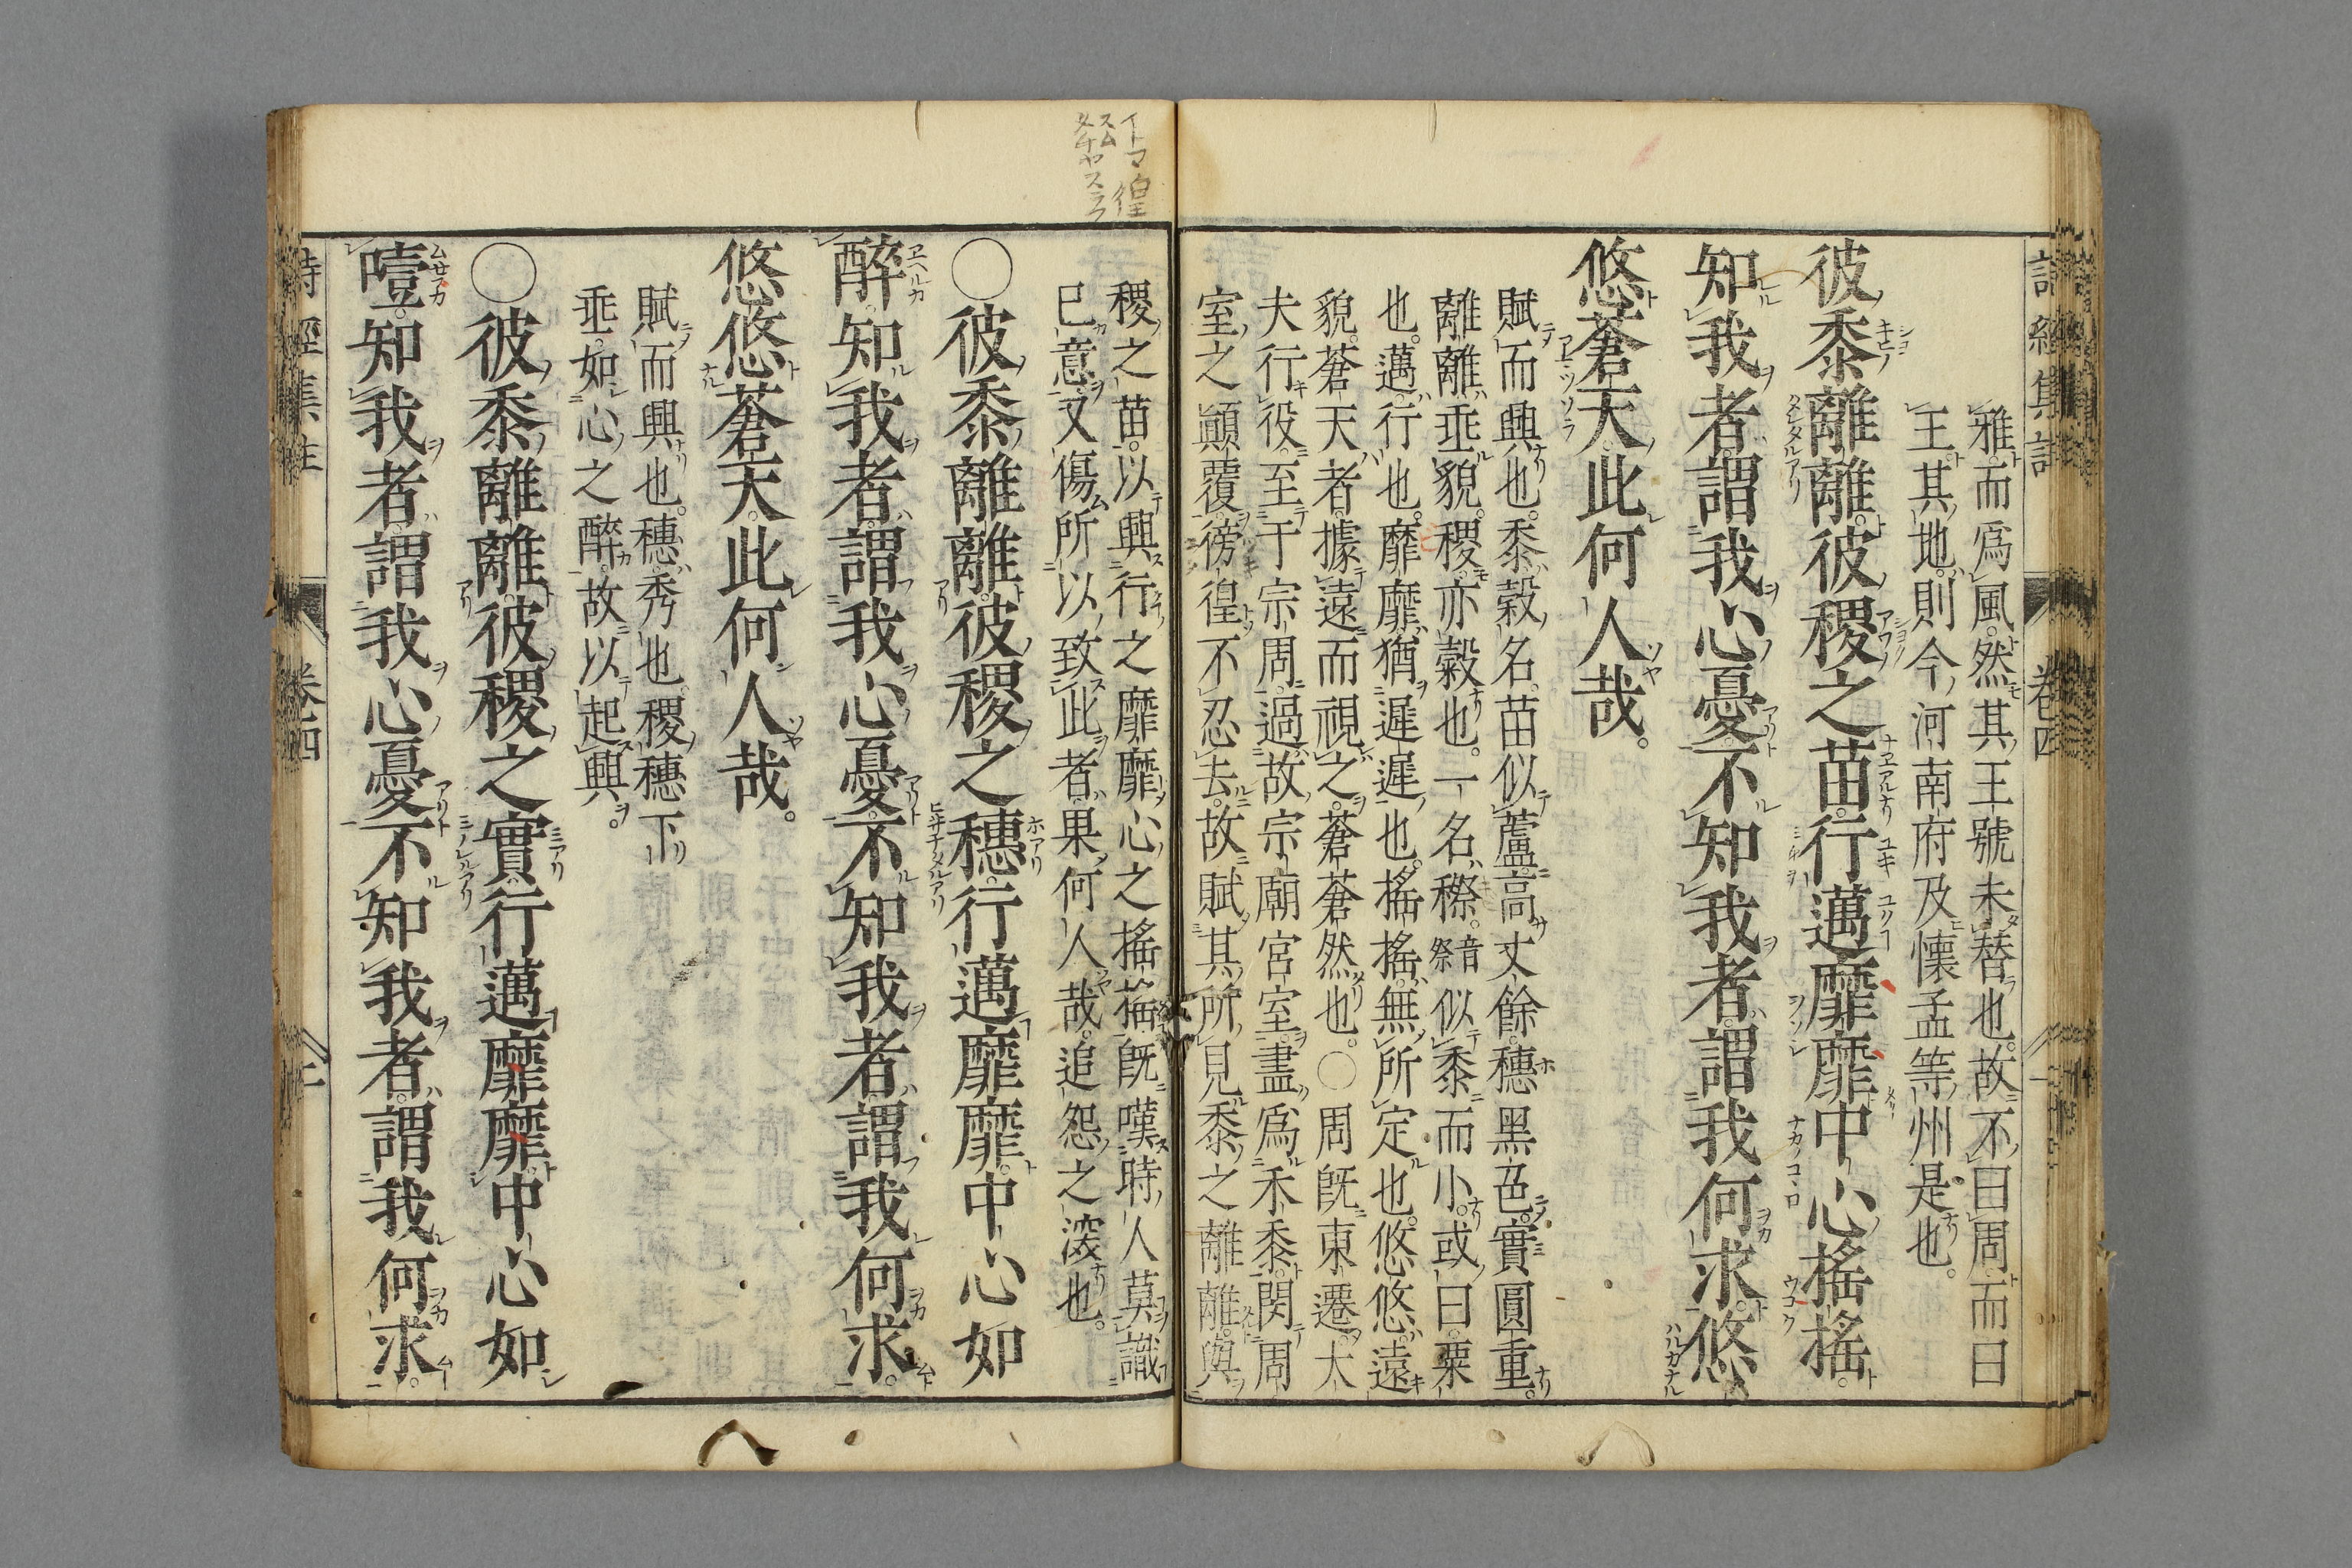 雅而為風然其王號未替也故不曰周而曰
王其地則今河南府及懷孟等州是也
彼黍離離彼稷之苗行邁靡靡中心搖搖
知我者謂我心憂不知我者謂我何求悠
悠蒼天此何人哉
賦而興也黍穀名苗似蘆高丈餘穗黑色實圓重
離離垂貌稷亦穀也一名穄音祭似黍而小或曰粟
也邁行也靡靡猶遲遲也搖搖無所定也悠悠遠
貌蒼天者據遠而視之蒼蒼然也○周既東遷大
夫行役至于宗周過故宗廟宮室盡為禾黍閔周
室之顛覆徬徨不忍去故賦其所見黍之離離與
稷之苗以興行之靡靡心之搖搖既嘆時人莫識
已意又傷所以致此者果何人哉追怨之深也
○彼黍離離彼稷之穗行邁靡靡中心如
醉知我者謂我心憂不知我者謂我何求
悠悠蒼天此何人哉
賦而興也穗秀也稷穗下
垂如心之醉故以起興
○彼黍離離彼稷之實行邁靡靡中心如
噎知我者謂我心憂不知我者謂我何求
詩經集註 卷四 二